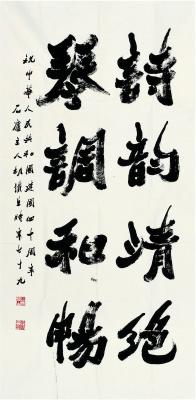 詩韵靖绝
琴調和暢
祝中華人民共和國建國四十周年
石廬主人時年七十九